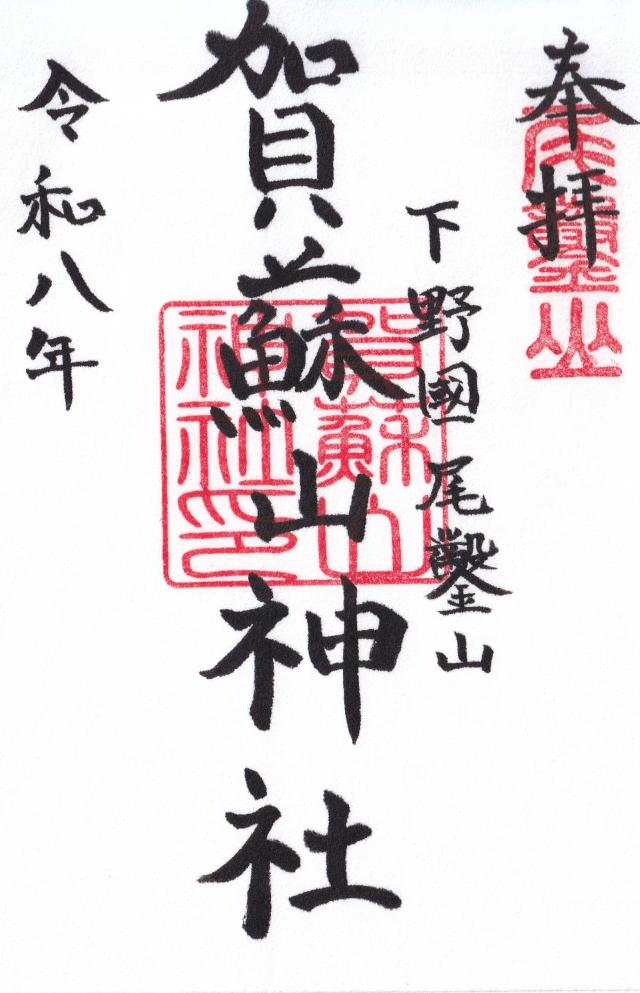 奉拝
尾鑿山
下野國尾鑿山
賀蘇山神社
賀蘇山神社印
令和八年